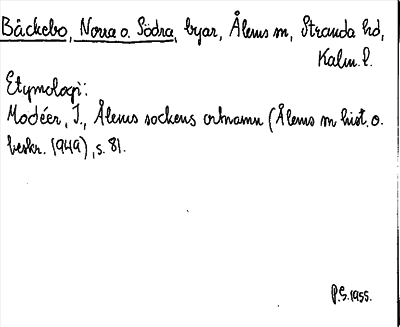 Bäckebo, Norra o. Södra, byar, Ålems sn, Stranda hd,
Kalm. l.
Etymologi:
Modéer, I., Ålems sockens ortnamn (Ålems sn hist. o.
beskr. 1949), s. 81.
P.S. 1955.